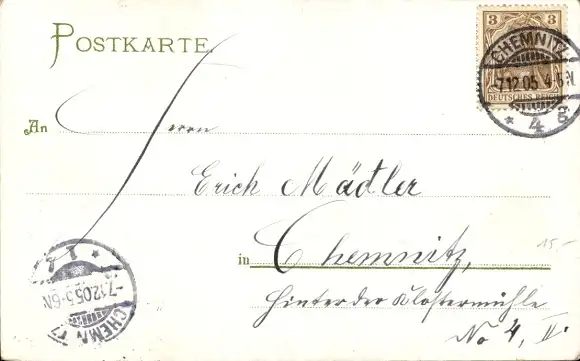 POSTKARTE.
3 3
DEUTSCHES REICH
CHEMNITZ
-7.12.05. 4-5N.
* 4 g
An Herrn
Erich Mädler
in Chemnitz,
Hinter der Klostermühle
No 4, II.
15,-
CHEMNITZ
-7.12.05. 5-6N.
* 1 *